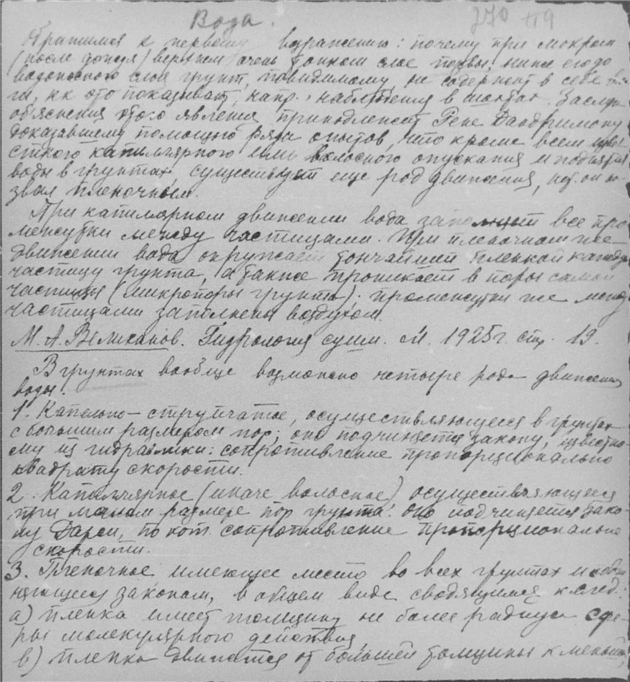 Вода. 270 419
Обратимся к первому возражению: почему при мокром
(после дождя) верхнем очень тонком слое почвы, ниже его до
водоносного слоя грунт, повидимому, не содержит в себе
ги, как это показывают, напр. наблюдения в шахтах. Заслуга
объяснения этого явления принадлежит Рене Даодримону,
доказавшему помощью ряда опытов, что кроме всем
стного капиллярного или волосного опускания и поднятия
воды в грунтах, существует еще род движения, кот. он на
звал пленочным.
При капиллярном движении вода заполняет все про
межутки между частицами. При пленочном же
движении вода окружает тончайшей пленкой каждую
частицу грунта, а также проникает в поры самой
частицы (микропоры грунта); промежутки же между
частицами заполнены воздухом.
М. А. Великанов. Гидрология суши. М. 1925г. стр. 19.
В грунтах вообще возможно четыре рода движения
воды:
1. Капельно-струйчатое, осуществляющееся в грунтах
с большим размером пор; оно подчиняется закону, известно
му из гидравлики: сопротивление пропорционально
квадрату скорости.
2. Капиллярное (иначе волосное), осуществляющееся
при малом размере пор грунта. Оно подчиняется зако
ну Дарси, по кот. сопротивление пропорционально
скорости.
3. Пленочное, имеющее место во всех грунтах и
няющееся законам, в общем виде сводящимся к след:
а) пленка имеет толщину не более радиуса сфе
ры молекулярного действия,
в) пленка движется от большей толщины к меньшей,